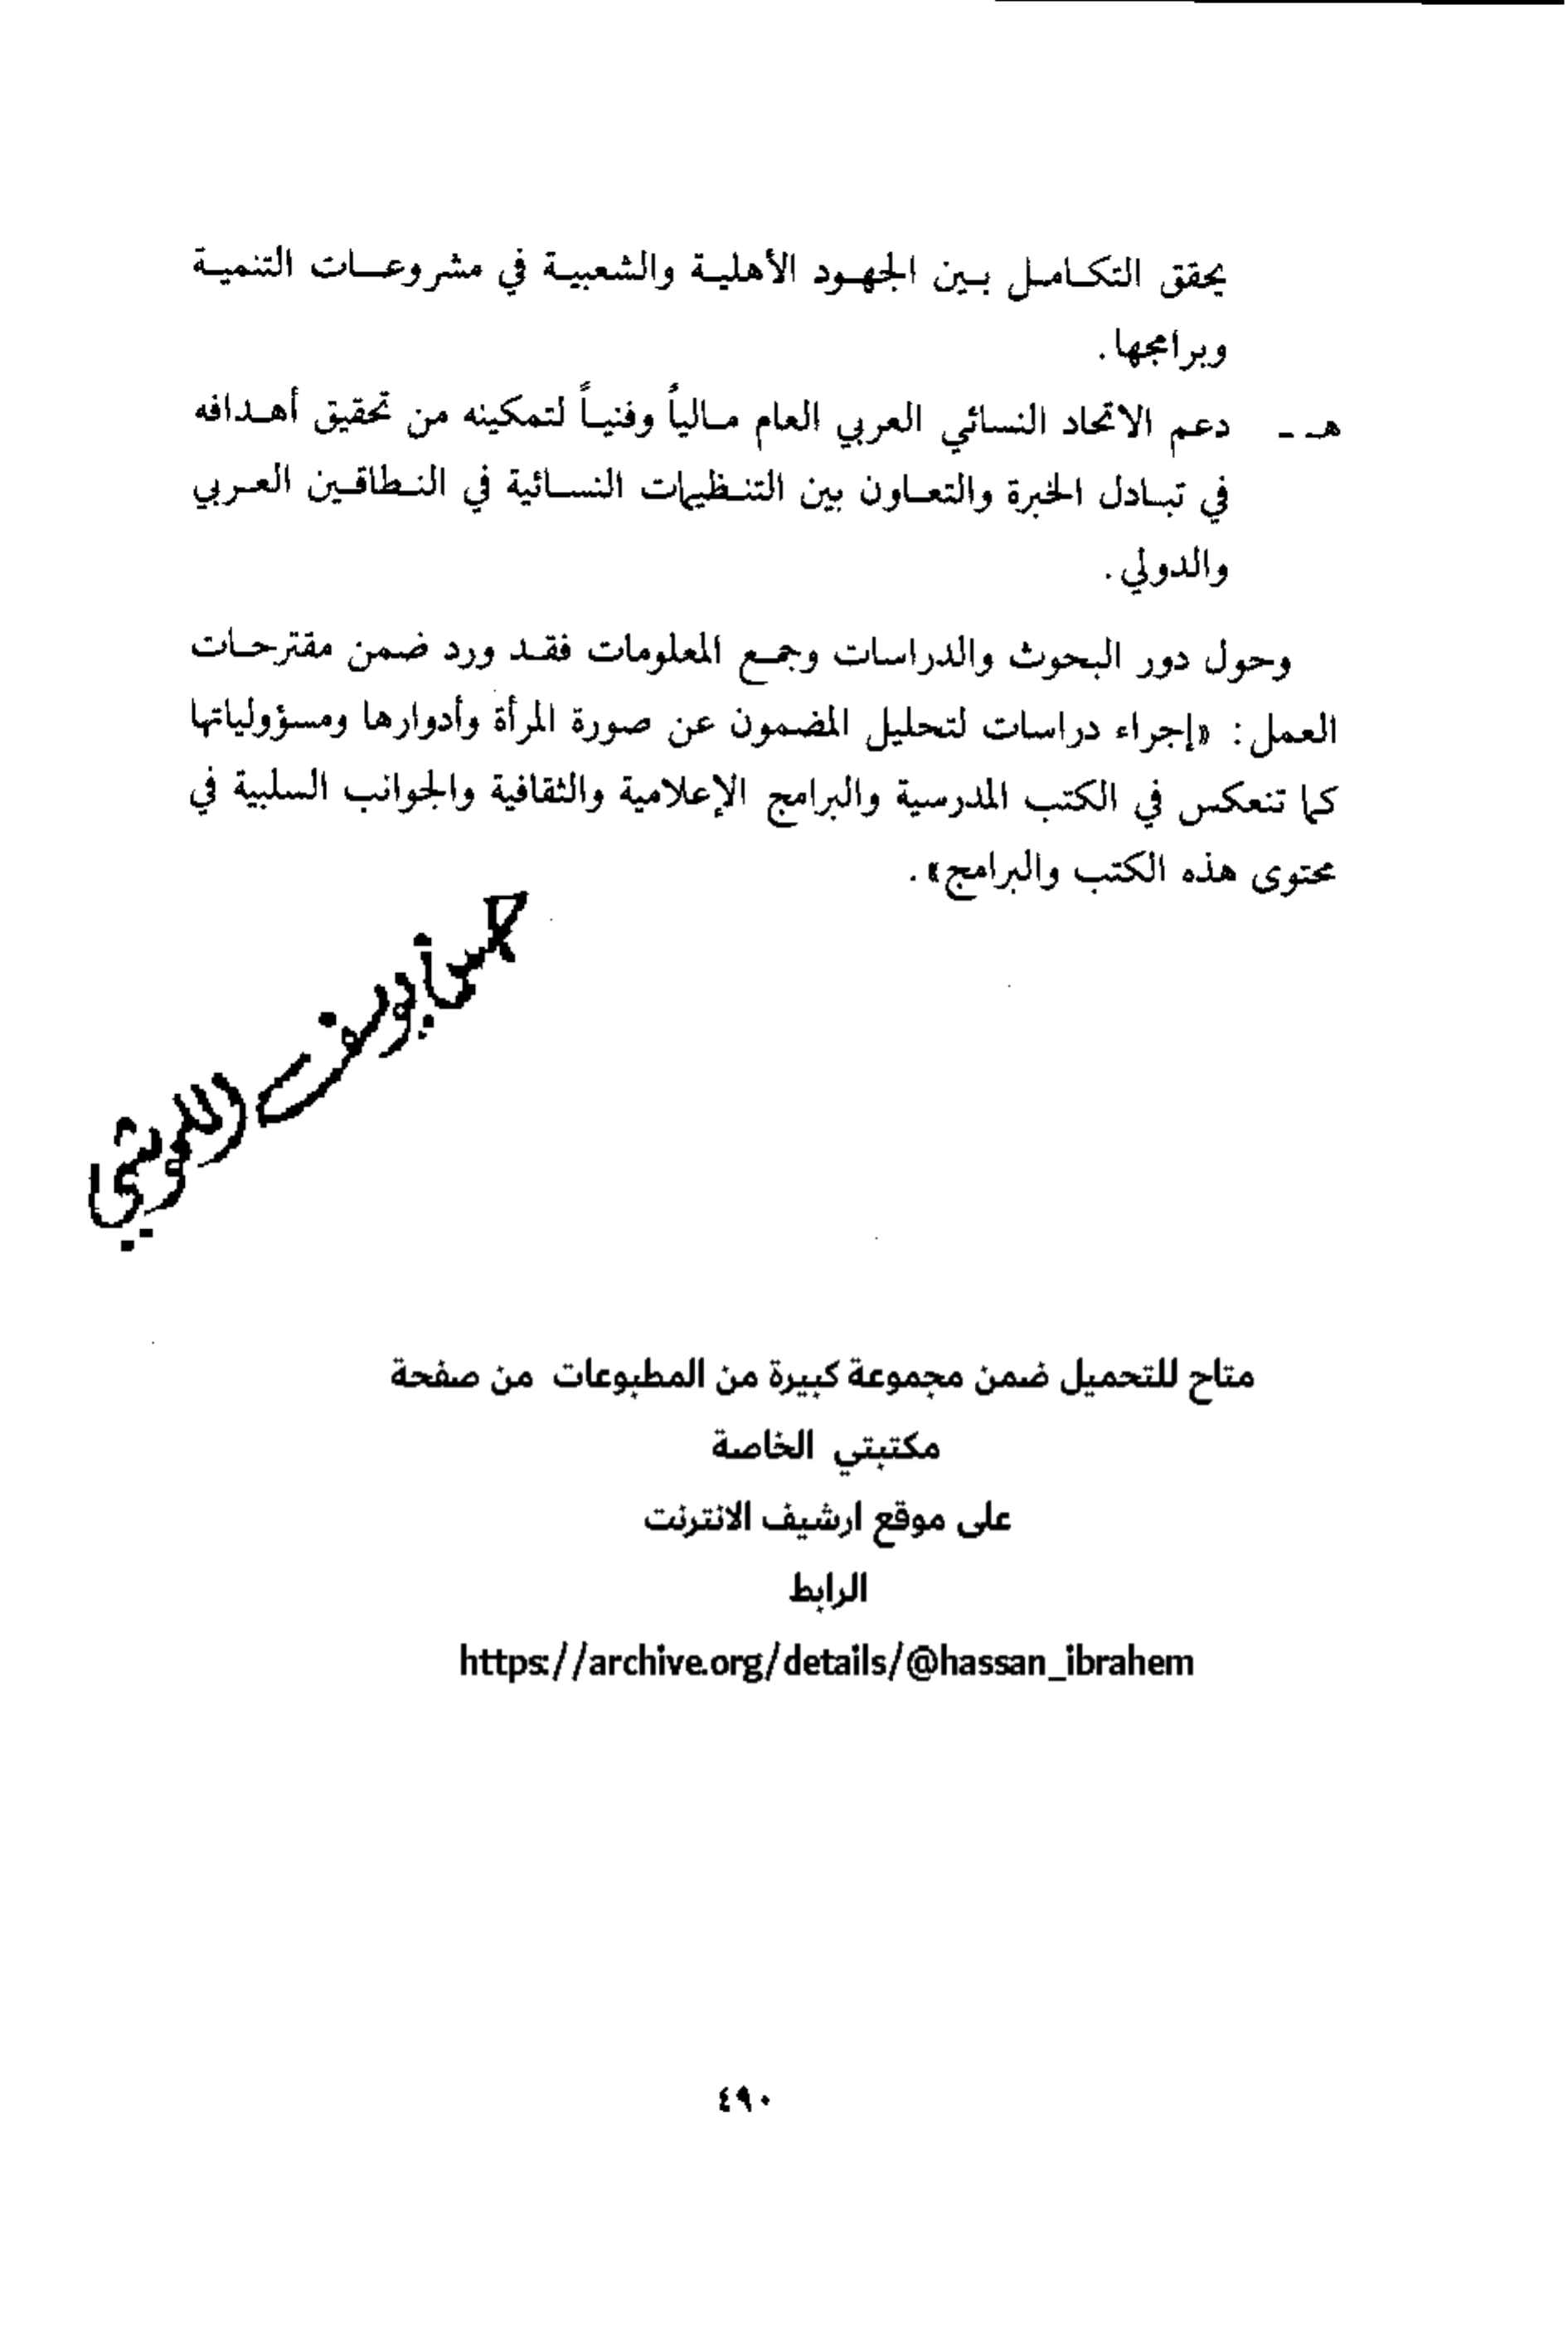 يحقق التكامل بين الجهود الأهلية والشعبية في مشروعات التنمية
وبرامجها .
هـ ـ دعم الاتحاد النسائي العربي العام مالياً وفنياً لتمكينه من تحقيق أهدافه
في تبادل الخبرة والتعاون بين التنظيمات النسائية في النطاقين العربي
والدولي .
وحول دور البحوث والدراسات وجمع المعلومات فقد ورد ضمن مقترحات
العمل : «إجراء دراسات لتحليل المضمون عن صورة المرأة وأدوارها ومسؤولياتها
كما تنعكس في الكتب المدرسية والبرامج الإعلامية والثقافية والجوانب السلبية في
محتوى هذه الكتب والبرامج» .
متاح للتحميل ضمن مجموعة كبيرة من المطبوعات من صفحة
مكتبتي الخاصة
على موقع ارشيف الانترنت
الرابط
https://archive.org/details/@hassan_ibrahem
٤٩٠